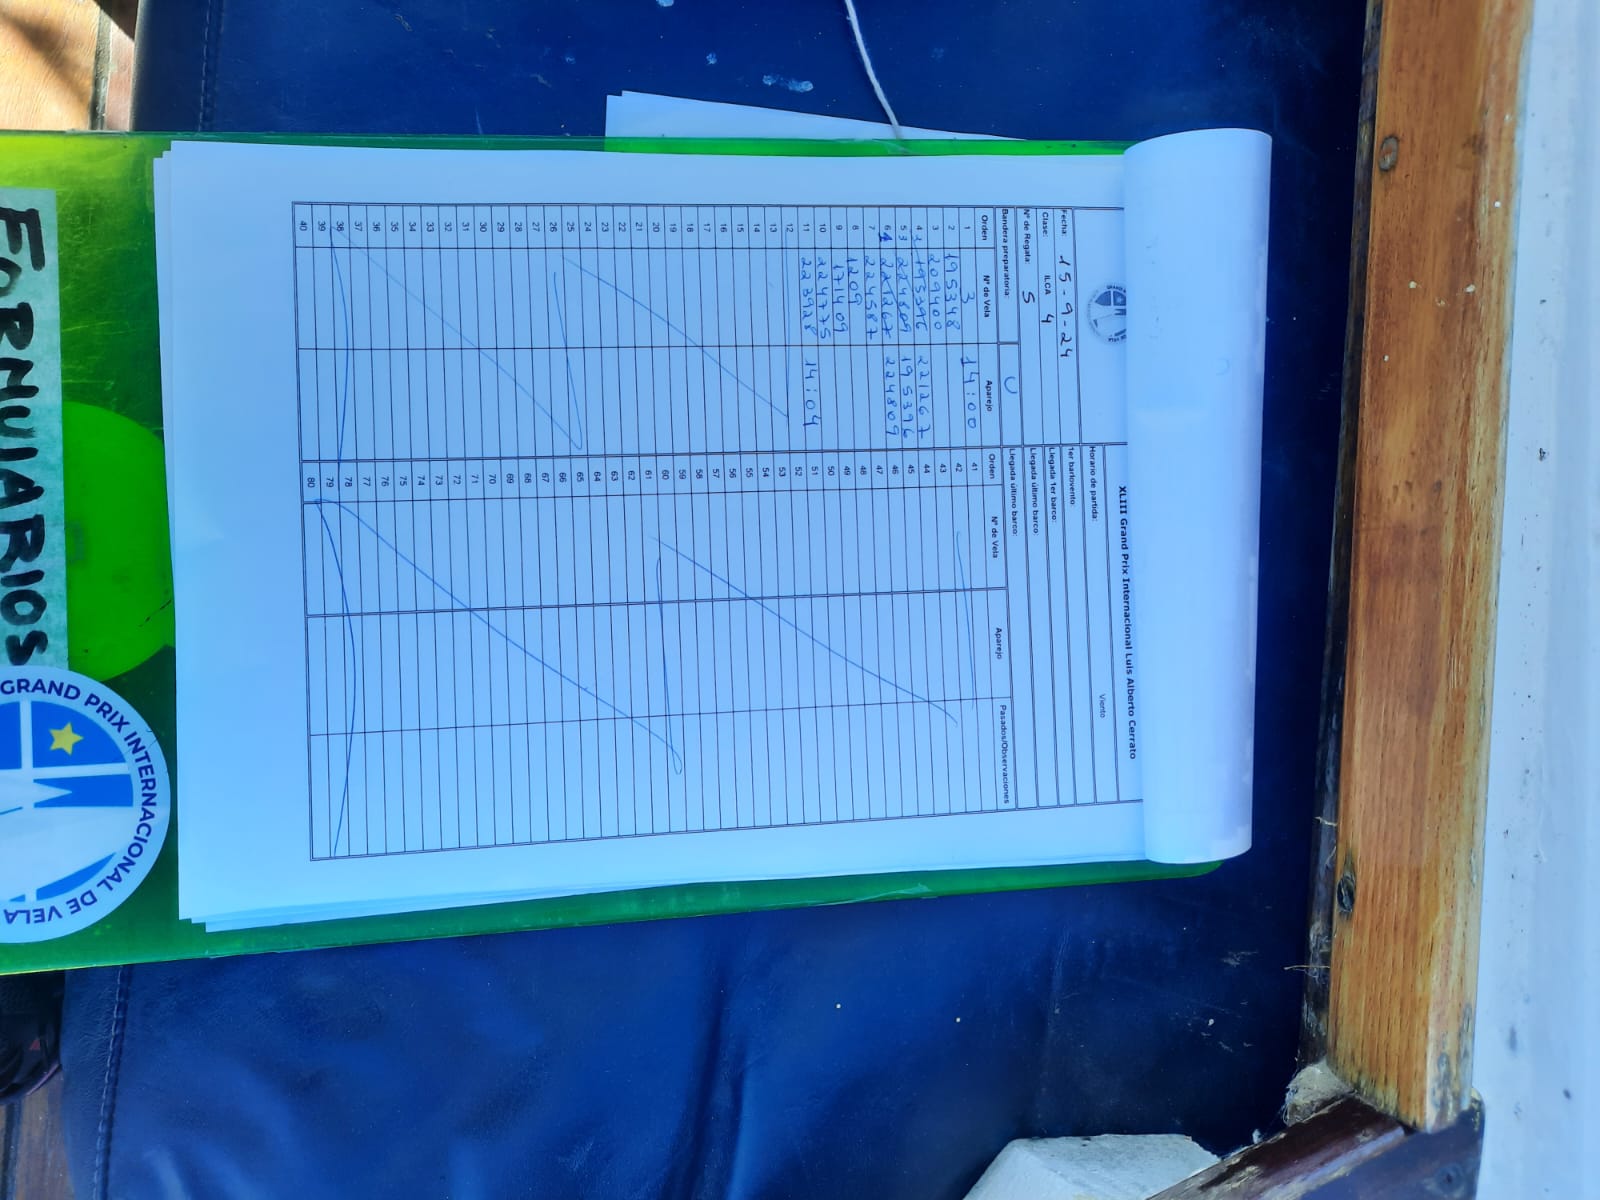 XLIII Grand Prix Internacional Luis Alberto Cerrato
Horario de partida: Viento
Fecha: 15-9-24
1er barlovento:
Clase: ILCA 4
Llegada 1er barco:
Nº de Regata: 5
Llegada último barco:
Bandera preparatoria: U
Llegada último barco:
Orden Nº de Vela Aparejo
1 3 14:00
2 195348
3 209400
4 2 195396 221267
5 3 224809 195396
6 1 221267 224809
7 224587
8 1209
9 171409
10 224775
11 223928 14:04
12
13
14
15
16
17
18
19
20
21
22
23
24
25
26
27
28
29
30
31
32
33
34
35
36
37
38
39
40
Orden Nº de Vela Aparejo Pasados/Observaciones
41
42
43
44
45
46
47
48
49
50
51
52
53
54
55
56
57
58
59
60
61
62
63
64
65
66
67
68
69
70
71
72
73
74
75
76
77
78
79
80
FORMULARIOS
GRAND PRIX INTERNACIONAL DE VELA